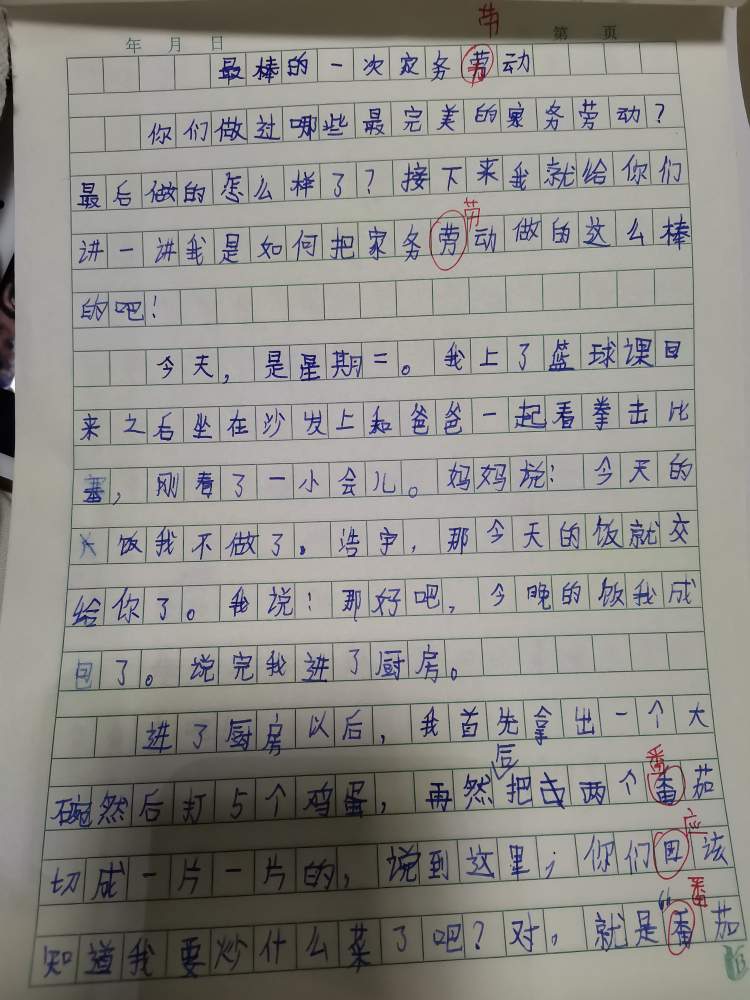 劳
年 月 日 第 页
最棒的一次家务劳动
你们做过哪些最完美的家务劳动?
最后做的怎么样了?接下来我就给你们
劳
讲一讲我是如何把家务劳动做的这么棒
的吧!
今天,是星期二。我上了篮球课回
来之后坐在沙发上和爸爸一起看拳击比
赛,刚看了一小会儿。妈妈说:今天的
饭我不做了。浩宇,那今天的饭就交
给你了。我说:那好吧,今晚的饭我成
包了。说完我进了厨房。
进了厨房以后,我首先拿出一个大
后 番
碗然后打5个鸡蛋,再然把去两个番茄
应
切成一片一片的,说到这里,你们回该
番
知道我要炒什么菜了吧?对。就是“番茄